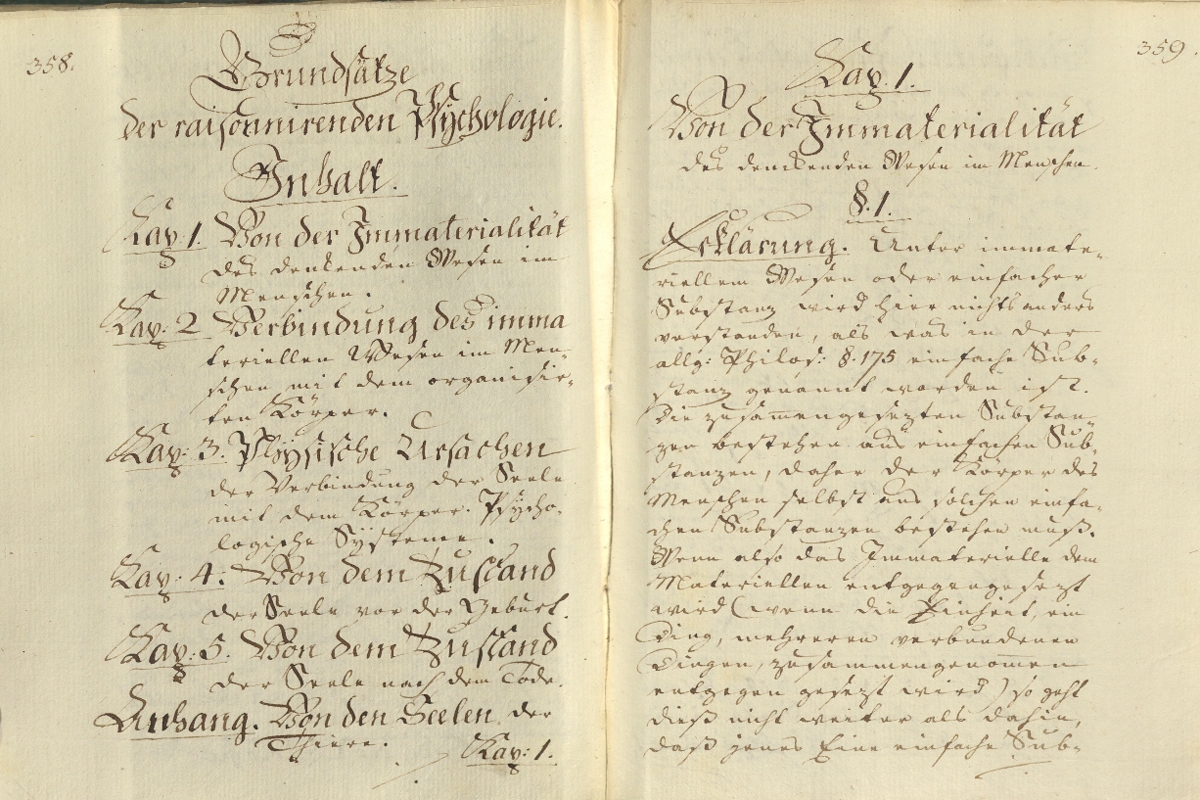 358.
Grundsätze
der raisonnirenden Psychologie.
Inhalt.
Kap. 1. Von der Immaterialität
des denkenden Wesen im
Menschen.
Kap: 2 Verbindung des imma
teriellen Wesen im Men-
schen mit dem organisir-
ten Körper.
Kap: 3. Physische Ursachen
der Verbindung der Seele
mit dem Körper. Psycho-
logische Systeme.
Kap: 4: Von dem Zustand
der Seele vor der Geburt.
Kap: 5. Von dem Zustand
der Seele nach dem Tode.
Anhang. Von den Seelen der
Thiere.
Kap: 1.
359.
Kap. 1.
Von der Immaterialität
des denkenden Wesen im Menschen.
§. 1.
Erklärung. Unter immate-
riellem Wesen oder einfacher
Substanz wird hier nichts anders
verstanden, als was in der
allg: Philos: §. 175 einfache Sub-
stanz genannt worden ist.
Die zusam̅engesezten Substan
zen bestehen aus einfachen Sub-
stanzen, daher der Körper des
Menschen selbst aus solchen einfa-
chen Substanzen bestehen muß.
Wenn also das Immaterielle dem
Materiellen entgegengesezt
wird (wenn die Einheit, ein
Ding, mehreren verbundenen
Dingen, zusammengenom̅en
entgegen gesezt wird) so geht
dieß nicht weiter als dahin,
daß jenes Eine einfache Sub-